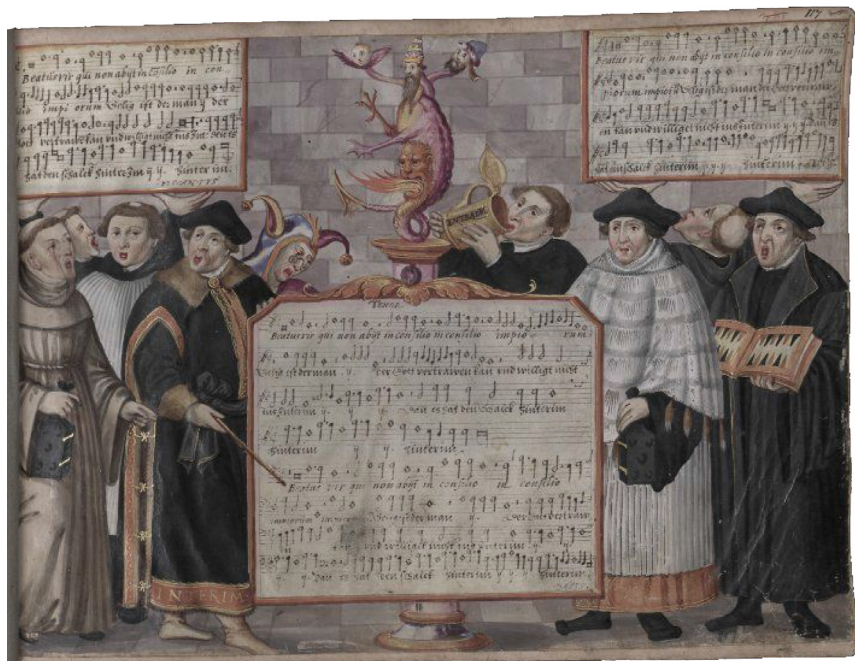 117
Beatus vir qui non abyt in consilio in con
impi orum Selig ist der man y der
Got vertrawen kan und williget nicht ins Int: den es
hat den schalck hinter Im y y. hinter im.
DISCANTUS
Beatus vir qui non abyt in consilio in consilio im
piorum impior Selig ist der man der Got vertrawen
en kan und williget nicht ins Interim y y dan es
hat ein schalck hinterim y y hinterim
INTERIM
TENOR
Beatus vir qui non abyt in consilio in consilio impio rum
Selig ist der man y. der Gott vertrawen kan und williget nicht
ins Interim y y y dan es hat den Schalck hinterim
hinterim y y hinterim.
Beatus vir qui non abyt in consilio in consilio
Selig ist der man y. der Got vertraw
en und williget nicht ins Interim y
y. dan es hat den schalck hinterim y y y hinterim.
INTERIM